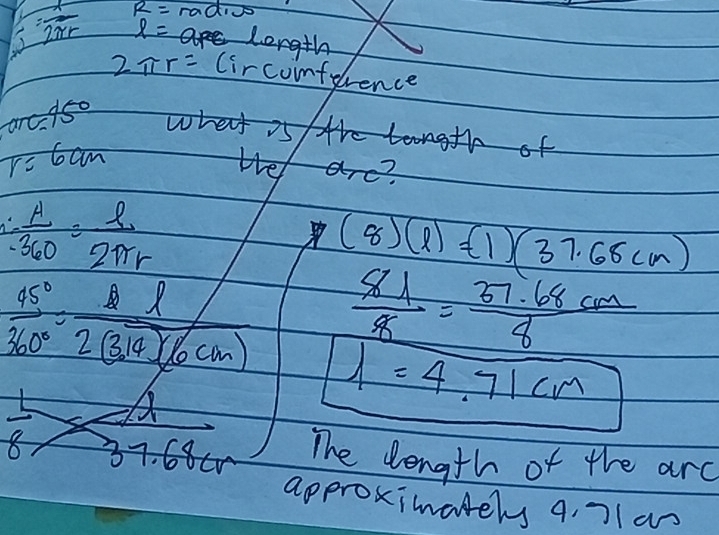 = l/2πr
R = radius
l = arc length
2πr = Circumference
arc = 45°
What is the length of
the arc?
r = 6 cm
A/360 = l/2πr
45°/360° = l/2(3.14)(6 cm)
1/8 = l/37.68cm
(8)(l) = (1)(37.68cm)
8l/8 = 37.68 cm/8
l = 4.71 cm
The length of the arc
approximately 4.71 cm